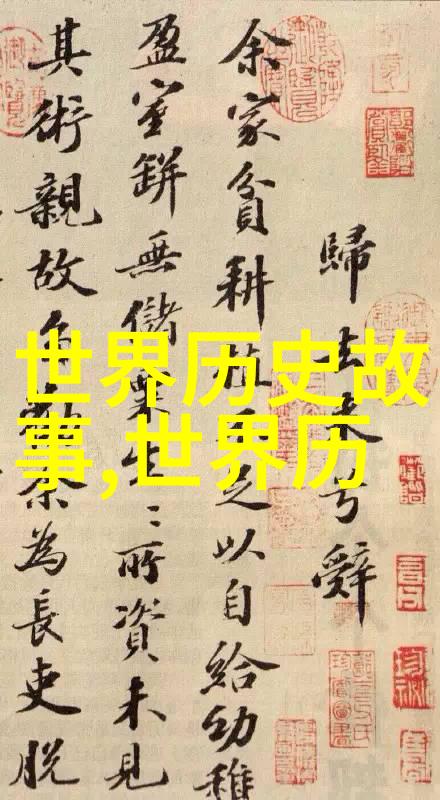 歸去来兮辭
余家貧耕植不足以自給幼稚
盈室缾無儲粟生〻所資未見
其術親故多勸余為長吏脱
世界历史故
事,世界历